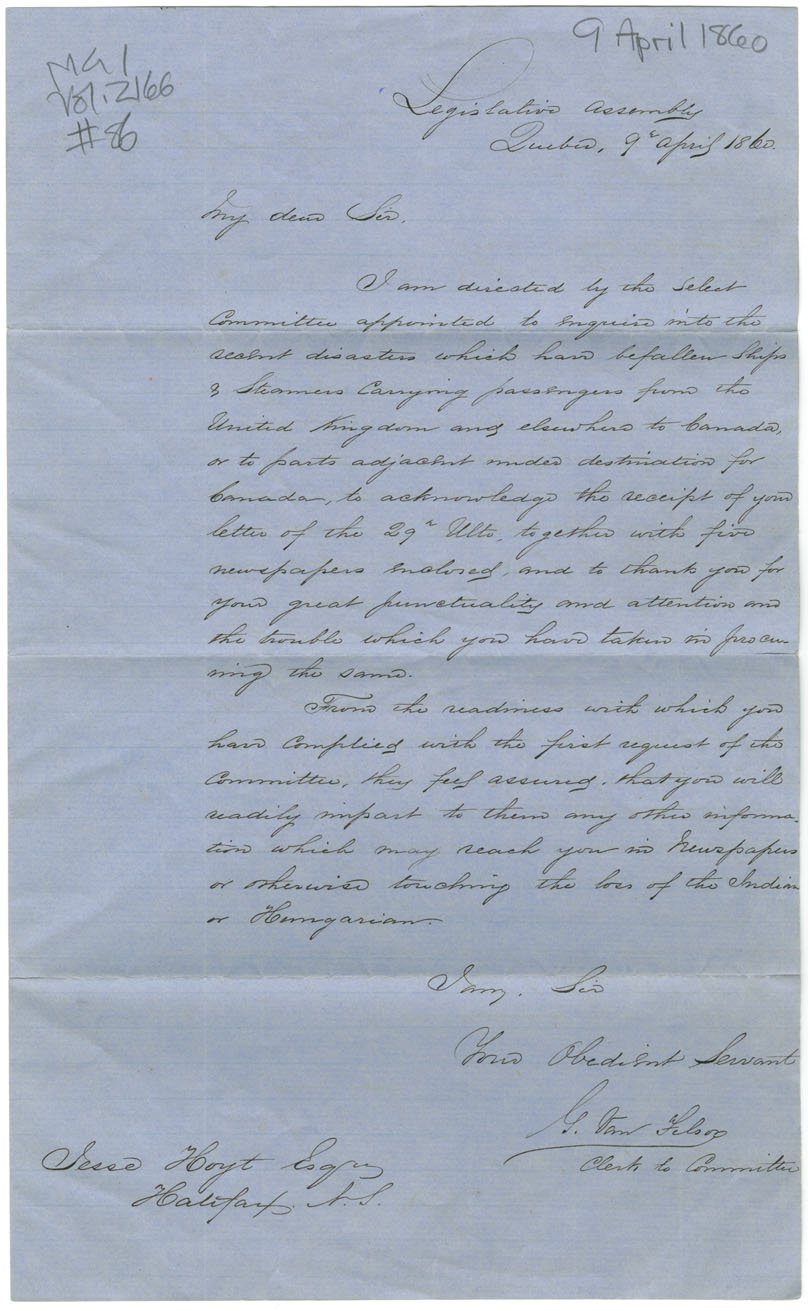 9 April 1860
MG 1
Vol. 2166
#86
Legislative Assembly
Quebec, 9th April 1860.
My dear Sir.
I am directed by the Select
Committee appointed to enquire into the
recent disasters which have befallen Ships
& Steamers Carrying passengers from the
United Kingdom and elsewhere to Canada,
or to parts adjacent under destination for
Canada, to acknowledge the receipt of your
letter of the 29th Ulto, together with five
newspapers enclosed, and to thank you for
your great punctuality and attention and
the trouble which you have taken in procu-
ring the same.
From the readiness with which you
have complied with the first request of the
Committee, they feel assured, that you will
readily impart to them any other informa
tion which may reach you in Newspapers
or otherwise touching the loss of the Indian
or Hungarian.
I am, Sir
Your Obedient Servant
G. Van Felson
Clerk to Committee
Jesse Hoyt Esqre
Halifax. N.S.